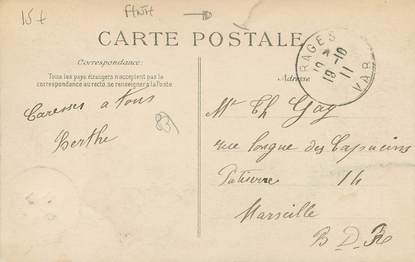 15t
CARTE POSTALE
Correspondance:
Tous les pays étrangers n'acceptent pas la
correspondance au recto, ne renseigner à la Poste
Adresse
RAGES
18 11
VAR
Caresses à tous
Berthe
83
Mr Th Gag
rue longue des Capucins
Patisserie 14
Marseille
B D R